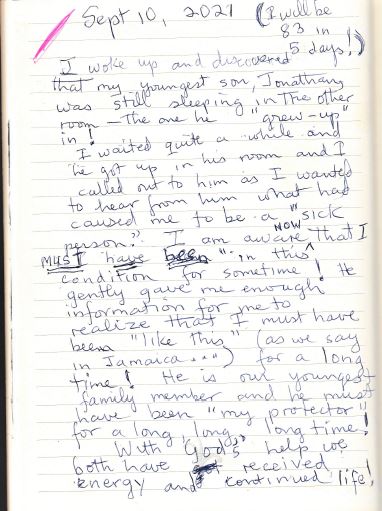 Sept 10, 2021 (I will be
83 in
5 days!)
I woke up and discovered
that my youngest son, Jonathang
was still sleeping in the other
room — the one he "grew-up"
in!
I waited quite a while and
he got up in his room and I
called out to him as I wanted
to hear from him what had
caused me to be a "sick
person?" I am aware NOW that I
MUST have been "in this
condition for sometime! He
gently gave me enough
information for me to
realize that I must have
been "like this" (as we say
in Jamaica...") for a long
time! He is our youngest
family member and he must
have been "my protector"
for a long, long, long time!
With "God's" help we
both have received
energy and continued life!